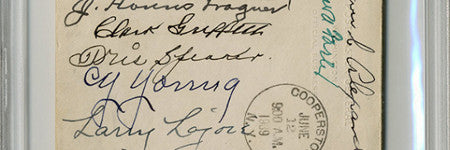 J. Honus Wagner
Clark Griffith
Tris Speaker
Cy Young
Larry Lajoie
COOPERSTO
JUNE
12
900 A.M.
1939
N.Y.